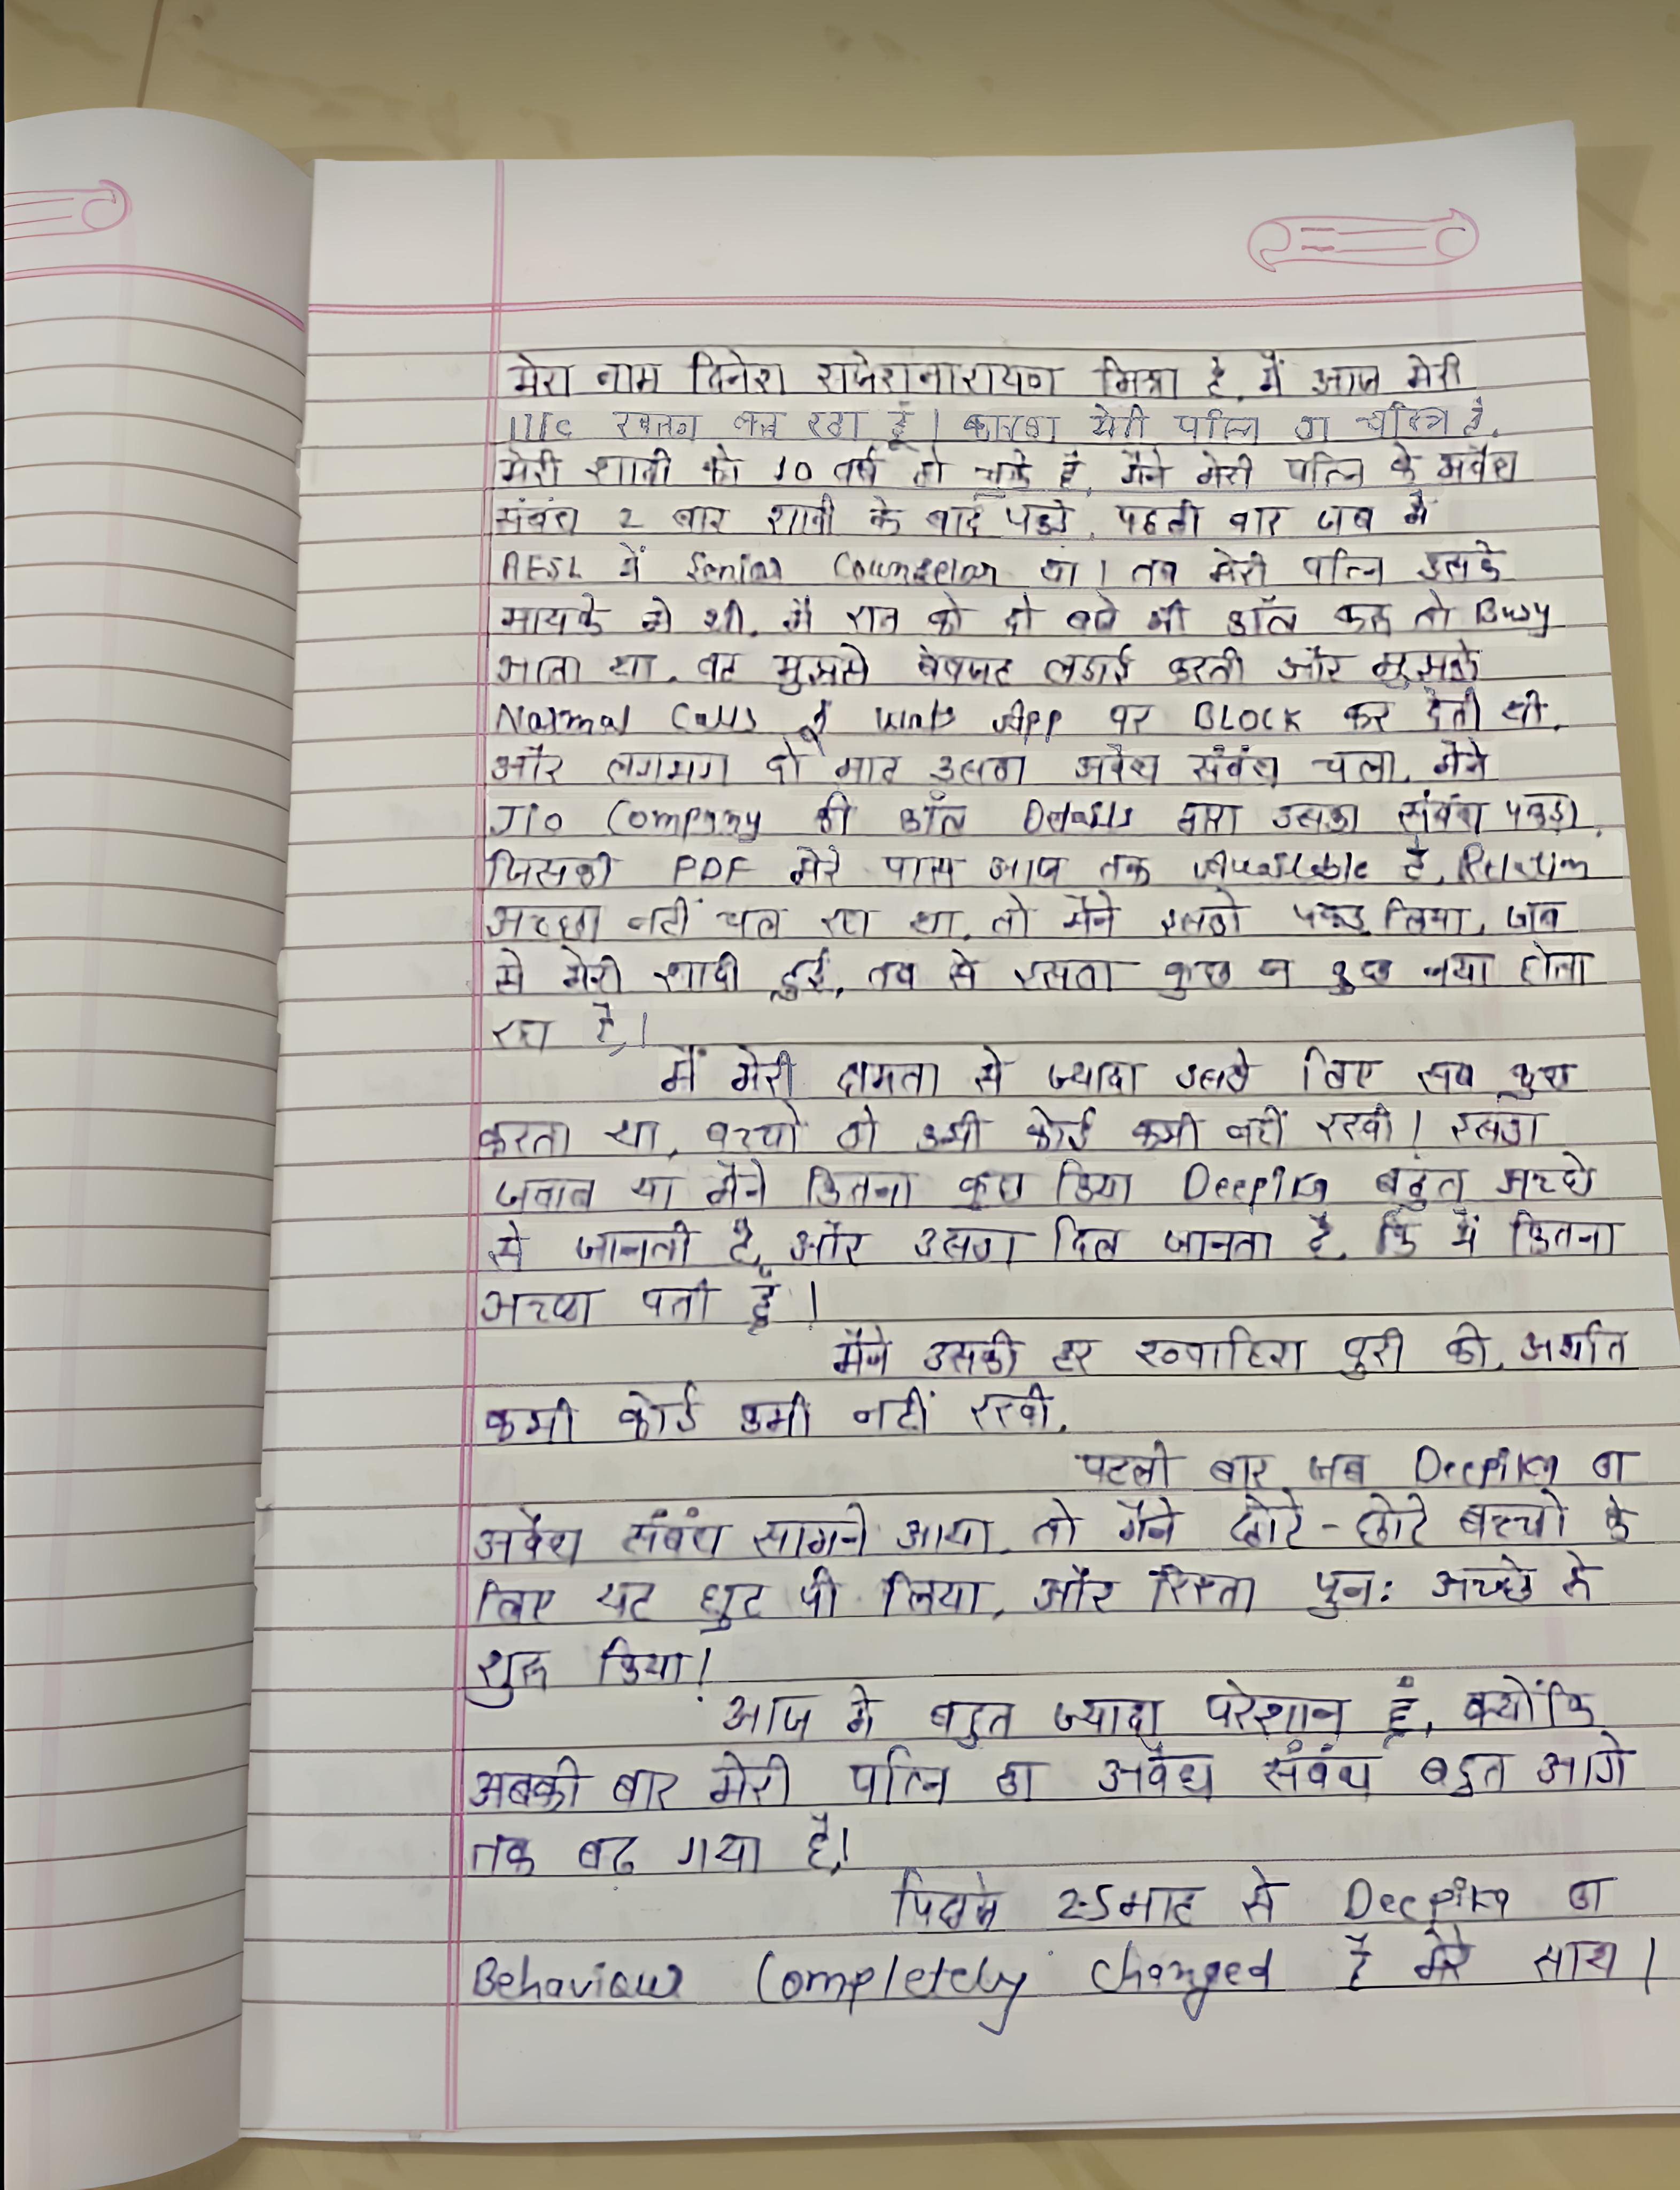 मेरा नाम दिनेश राजेशनारायण मिश्रा है. मैं आज मेरी
life खत्म कर रहा हूँ। कारण मेरी पत्नि का चरित्र है.
मेरी शादी को 10 वर्ष हो चुके है, मैने मेरी पत्नि के अवैध
संबंध 2 बार शादी के बाद पकडे. पहली बार जब मैं
AESL में Senior Counselor था। तब मेरी पत्नि उसके
मायके मे थी. मै रात को दो बजे भी कॉल करू तो Busy
आता था. वह मुझसे बेवजह लडाई करती और मुझको
Normal Calls व् Whats App पर BLOCK कर देती थी.
और लगभग दो माह उसका अवैध संबंध चला. मैने
JIO Company की कॉल Details द्वारा उसका संबंध पकड़ा.
जिसकी PDF मेरे पास आज तक Available है. Relation
अच्छा नहीं चल रहा था. तो मैने इसको पकड लिया. जब
से मेरी शादी हुई, तब से इसका कुछ न कुछ नया होता
रहा है।
मैं मेरी क्षमता से ज्यादा उसके लिए सब कुछ
करता था, बच्चो को कभी कोई कमी नहीं रखी। इसका
जवाब या मैने कितना कुछ किया Deepika बहुत अच्छे
से जानती है, और उसका दिल जानता है. कि मैं कितना
अच्छा पती हूँ।
मैने उसकी हर ख्वाहिश पुरी की. अर्थात
कभी कोई कमी नहीं रखी.
पहली बार जब Deepika का
अवैध संबंध सामने आया. तो मैने छोटे-छोटे बच्चो के
लिए यह घुट पी लिया, और रिस्ता पुन: अच्छे से
शुरू किया!
आज मे बहुत ज्यादा परेशान हूं, क्योंकि
अबकी बार मेरी पत्नि का अवैध संबंध बहुत आगे
तक बढ़ गया है।
पिछले 2-5 माह से Deepika का
Behaviour Completely changed है मेरे साथ।